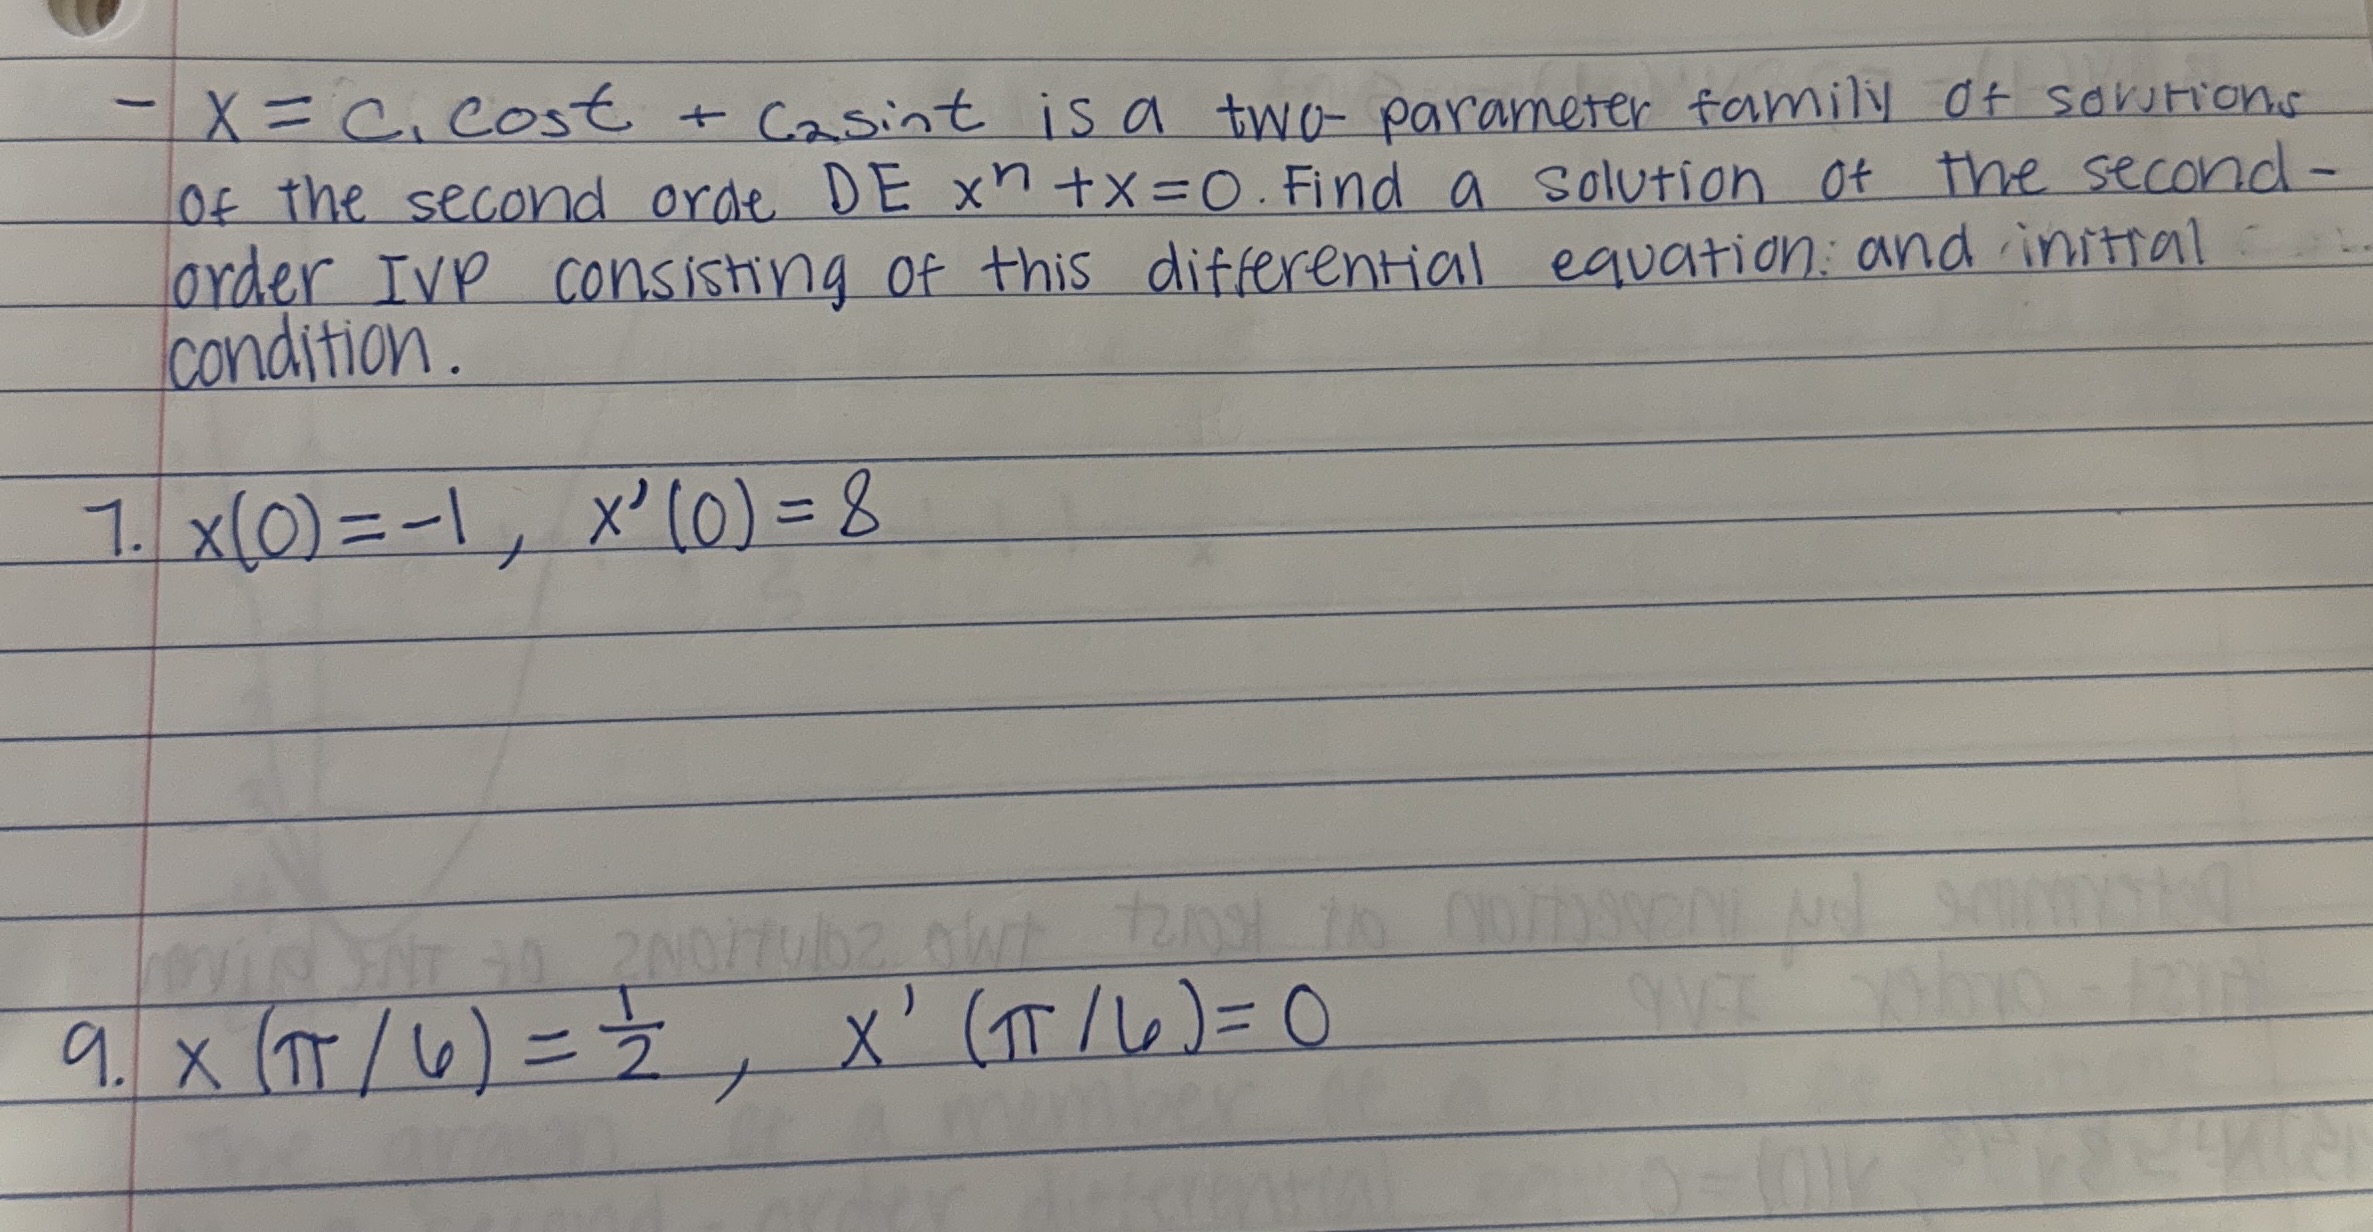 - x = c₁ cost + c₂sint is a two-parameter family of solutions
of the second orde DE xⁿ + x = 0. Find a solution of the second-
order IVP consisting of this differential equation: and initial
condition.
7. x(0) = -1, x'(0) = 8
9. x (π/6) = 1/2, x' (π/6) = 0